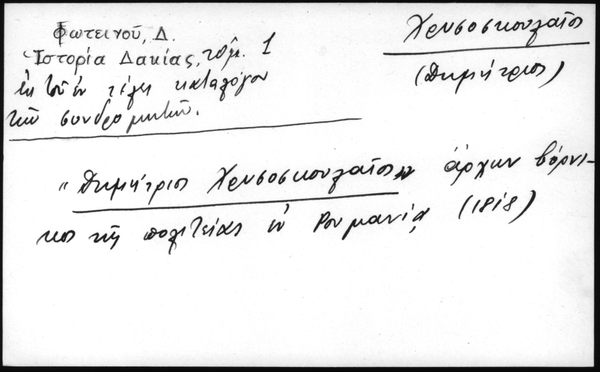 Φωτεινοῦ, Δ.
Ἱστορία Δακίας, τόμ. 1
ἐκ τοῦ ἐν τέλει καταλόγου
τῶν συνδρομητῶν.
Χρυσοσκουλαῖος
(Δημήτριος)
"Δημήτριος Χρυσοσκουλαῖος" ἄρχων βόρνι-
κος τῆς πολιτείας ἐν Ρουμανίᾳ (1818)